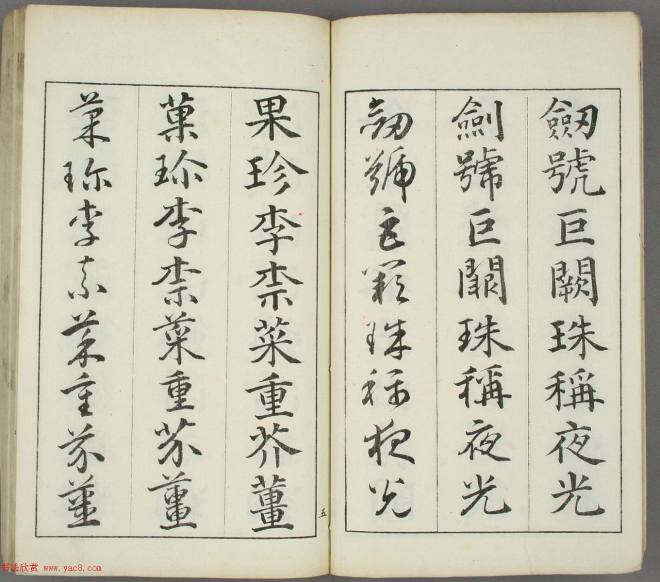 劔號巨闕珠稱夜光
劍號巨闕珠稱夜光
劔號巨闕珠稱夜光
果珍李柰菜重芥薑
菓珎李柰菜重芥薑
菓珎李柰菜重芥薑
五
书法欣赏 www.yac8.com